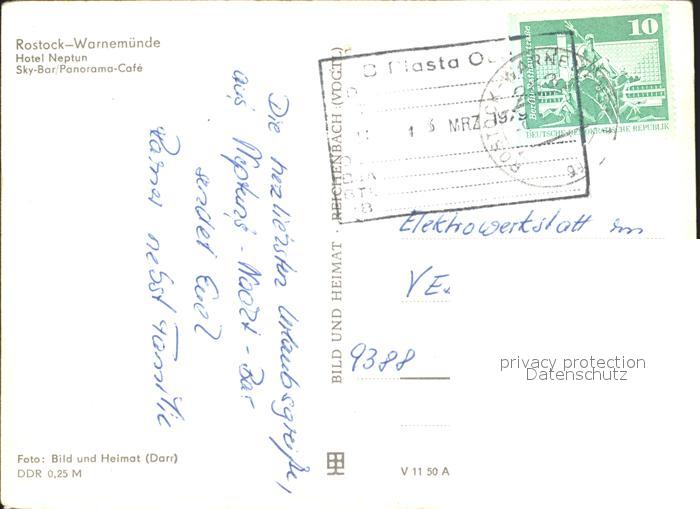 Rostock–Warnemünde
Hotel Neptun
Sky-Bar/Panorama-Café
Die herzlichsten Urlaubsgrüße,
aus Neptuns - Nacht - Bar
sendet Euch
Rainer nebst Familie
Foto: Bild und Heimat (Darr)
DDR 0,25 M
BILD UND HEIMAT · REICHENBACH (VOGTL)
V 11 50 A
10
Berlin, Rathausstraße
DEUTSCHE DEMOKRATISCHE REPUBLIK
ROSTOCK-WARNE
Plasta
MRZ. 1979
Elektrowerkstatt im
VE
9388
privacy protection
Datenschutz